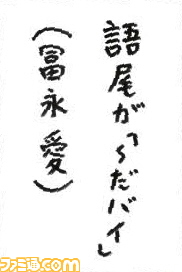 語尾が「～だバイ」
(冨永愛)
ファミ通.com